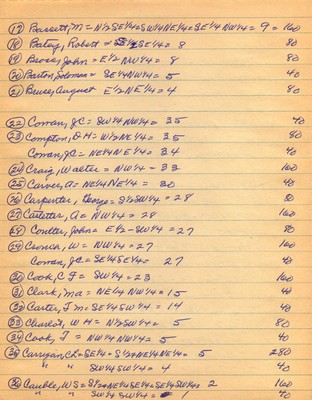 (17) Bassett, M = N½SE¼=SW¼NE¼=SE¼NW¼= 9 = 160
(18) Batey, Robert = S½SE¼= 8 80
(19) Bross, John = E½NW¼= 8 80
(20) Barton, Solomon = SE¼NW¼= 5 40
(21) Bruse, August E½NE¼= 4 80
(22) Coman, JC = SW¼NW¼= 35 40
(23) Compton, DH = W½NE¼= 35 80
Coman, JC = NE¼NE¼= 34 40
(24) Craig, Walter = NW¼= 33 160
(25) Carver, A = NE¼NE¼= 30 40
(26) Carpenter, George = S½SW¼= 28 80
(27) Castetter, A = NW¼= 28 160
(28) Coulter, John = E½-SW¼= 27 80
(29) Crench, W = NW¼= 27 160
Coman, JC = SE¼SE¼= 27 40
(30) Cook, C F = SW¼= 23 160
(31) Clark, Ma = NE¼NW¼= 15 40
(32) Carter, T M = SE¼SW¼= 14 40
(33) W H = N½SW¼= 5 80
(34) Cook, T = NW¼NW¼= 5 40
(35) Carrigan, CL = SE¼= S½NE¼NE¼= 5 280
" " SW¼NW¼= 4 40
(36) Cauble, WS = S½NE¼SE¼=SE¼SW¼= 2 160
" " SW¼SW¼= 1 40